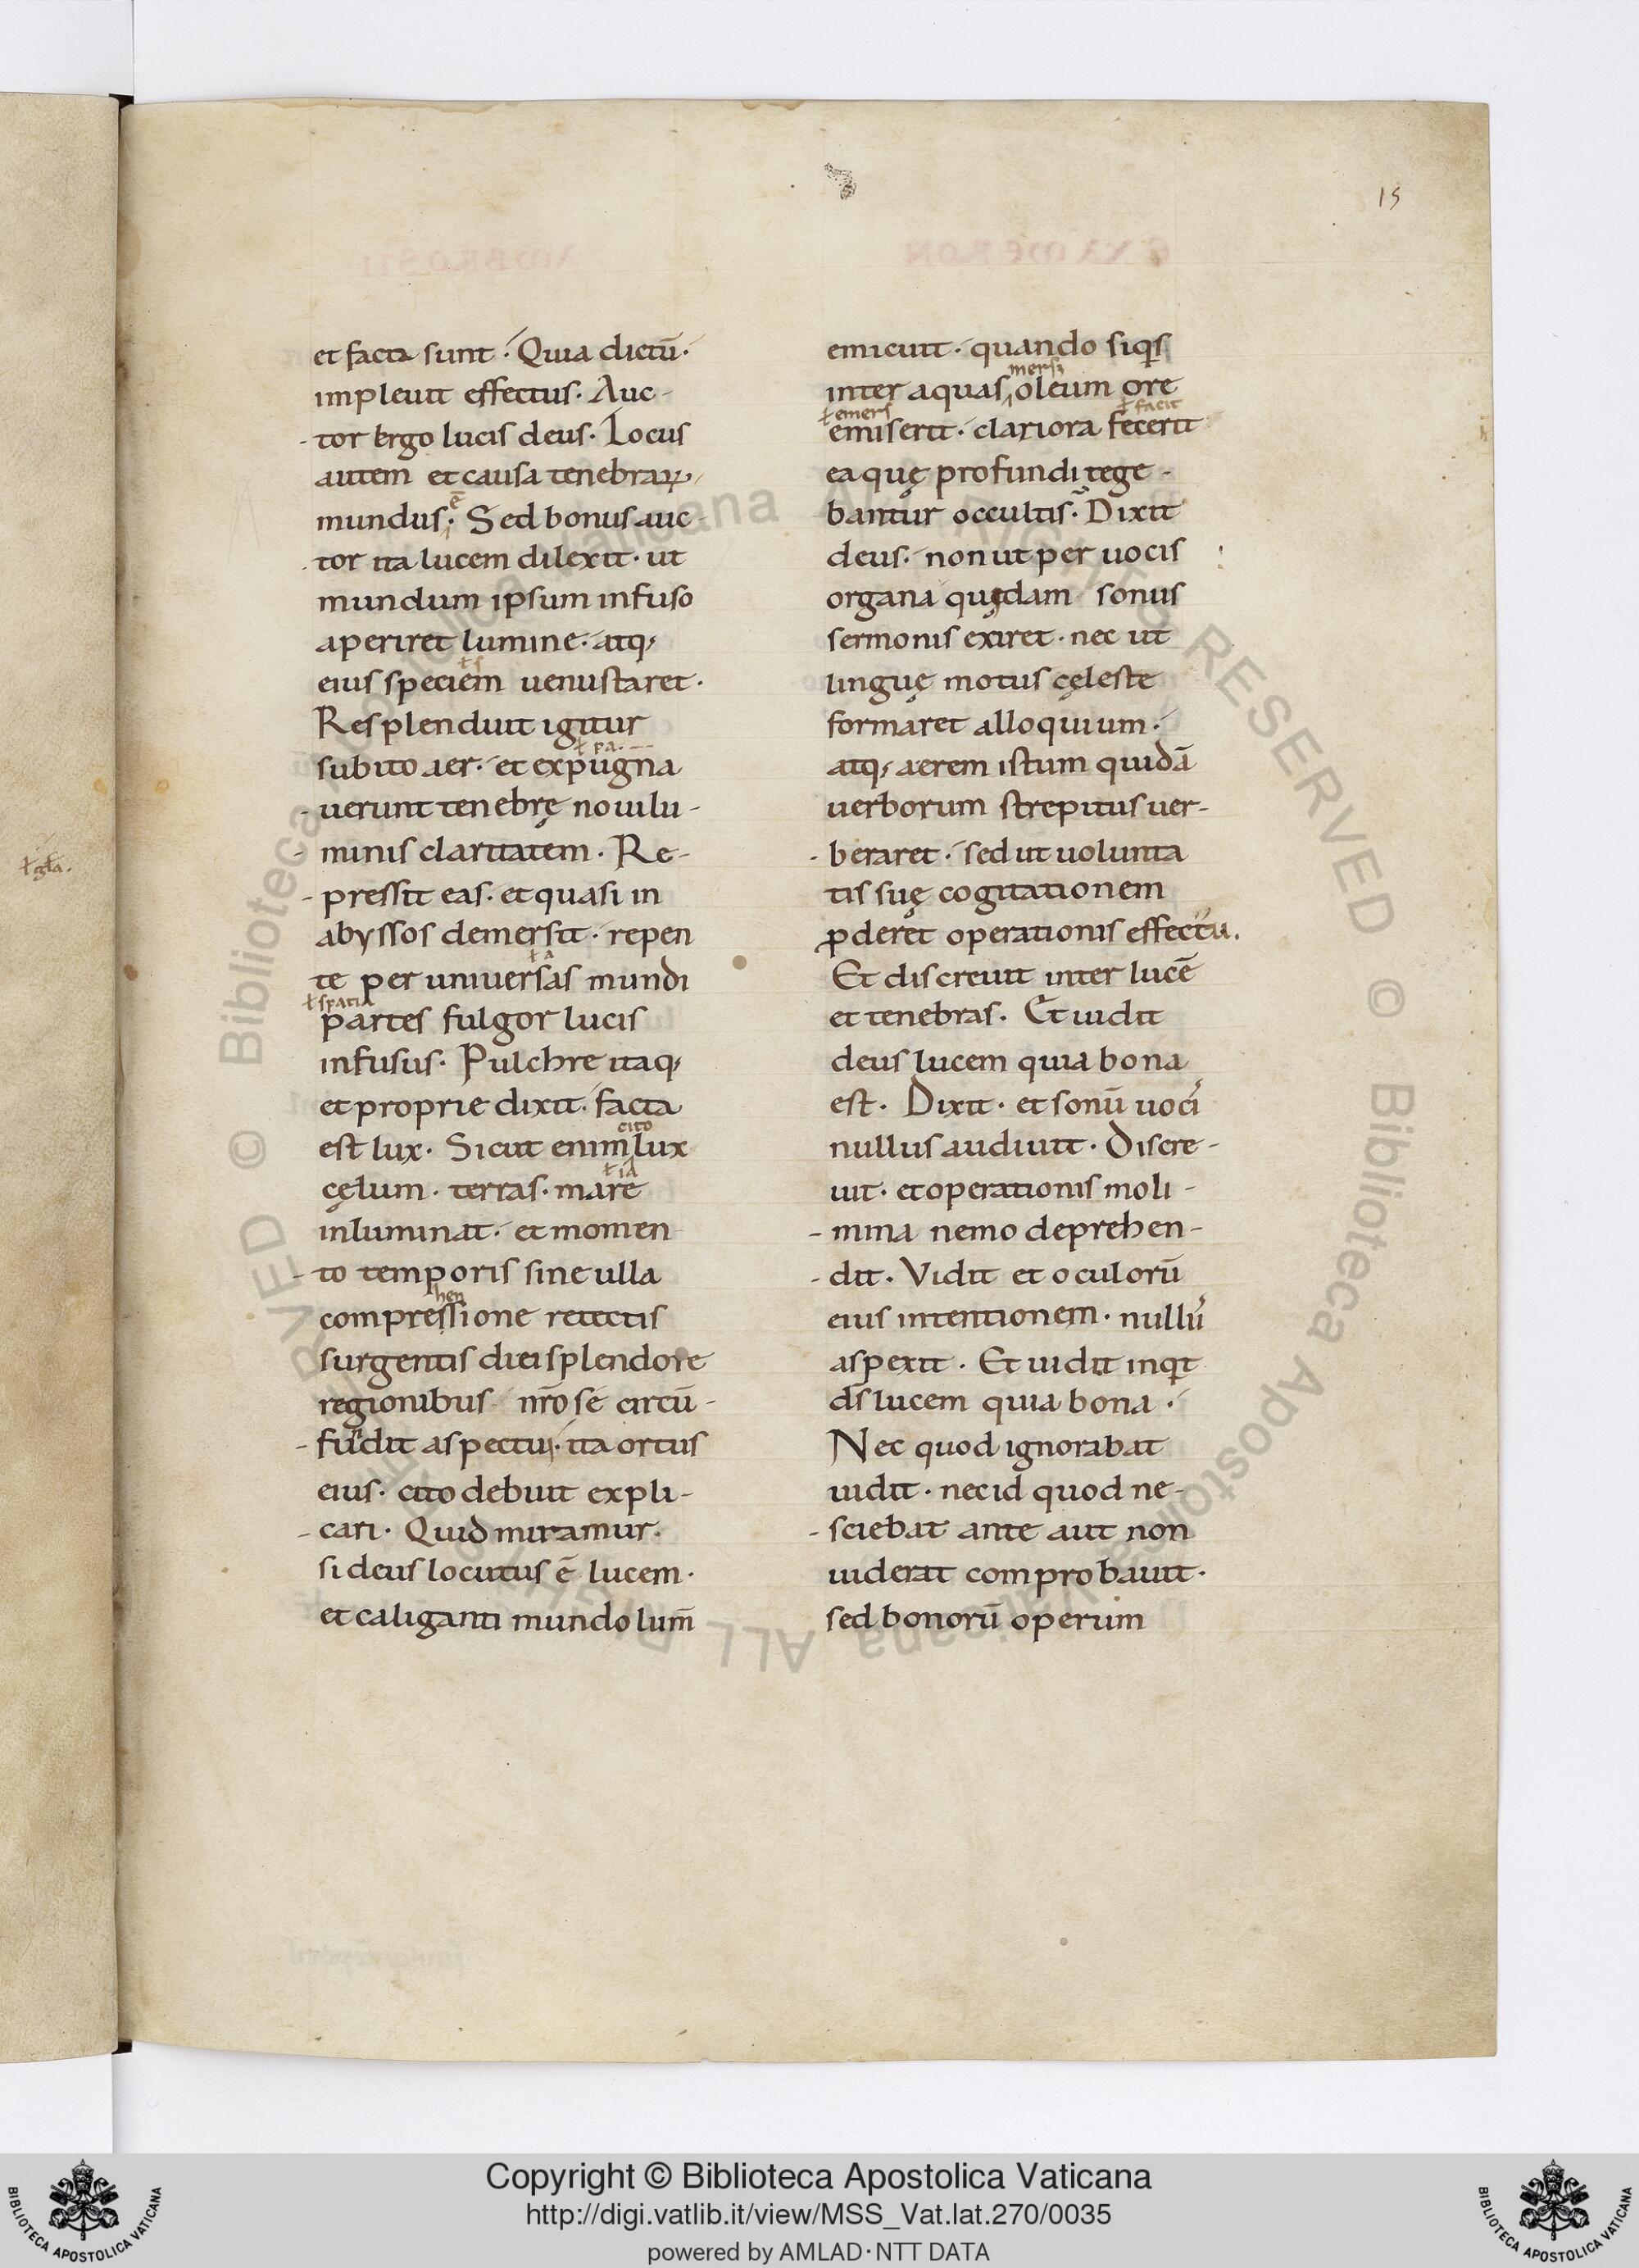 15
et facta sunt. Quia dictū.
impleuit effectus. Auc-
-tor ergo lucis deus. Locus
autem et causa tenebraꝝ
ē
mundus. Sed bonus auc-
tor ita lucem dilexit. ut
mundum ipsum infuso
aperiret lumine. atq;
ł s
eius speciem uenustaret.
Resplenduit igitur
ł pa.
subito aer. et expugna
-uerunt tenebrę noui lu-
-minis claritatem. Re-
-pressit eas. et quasi in
abyssos demersit. repen
ł a
te per uniuersas mundi
ł spatia
partes fulgor lucis
infusus. Pulchre itaq;
et proprie dixit. facta
cito
est lux. Sicut enim lux
ł ia
cęlum. terras. mare
inluminat. et momen
-to temporis sine ulla
hen
compressione retectis
surgentis diei splendore
regionibus nr̄o se circū-
-fudit aspectui. ita ortus
eius. cito debuit expli-
-cari. Quid miramur.
si deus locutus ē lucem.
et caliganti mundo lum̄
emicuit. quando siqs
mers;
inter aquas oleum ore
ł emers
ł facit
emiserit. clariora fecerit
ea quę profundi tege-
bantur occultis. Dixit
deus. non ut per uocis
organa quędam sonus
sermonis exiret. nec ut
linguę motus cęleste
formaret alloquium.
atq; aerem istum quidā
uerborum strepitus uer-
-beraret. sed ut uolunta
tis suę cogitationem
ꝓderet operationis effectu.
Et discreuit inter lucē
et tenebras. Et uidit
deus lucem quia bona
est. Dixit. et sonū uoci
nullus audiuit. Discre-
uit. et operationis moli-
-mina nemo deprehen-
-dit. Vidit et oculorū
eius intentionem. nullu
aspexit. Et uidit inqt
ds̄ lucem quia bona.
Nec quod ignorabat
uidit. nec id quod ne-
-sciebat ante aut non
uiderat comprobauit.
sed bonorū operum
ł gła.
Copyright © Biblioteca Apostolica Vaticana
http://digi.vatlib.it/view/MSS_Vat.lat.270/0035
powered by AMLAD·NTT DATA
BIBLIOTECA APOSTOLICA VATICANA
BIBLIOTECA APOSTOLICA VATICANA